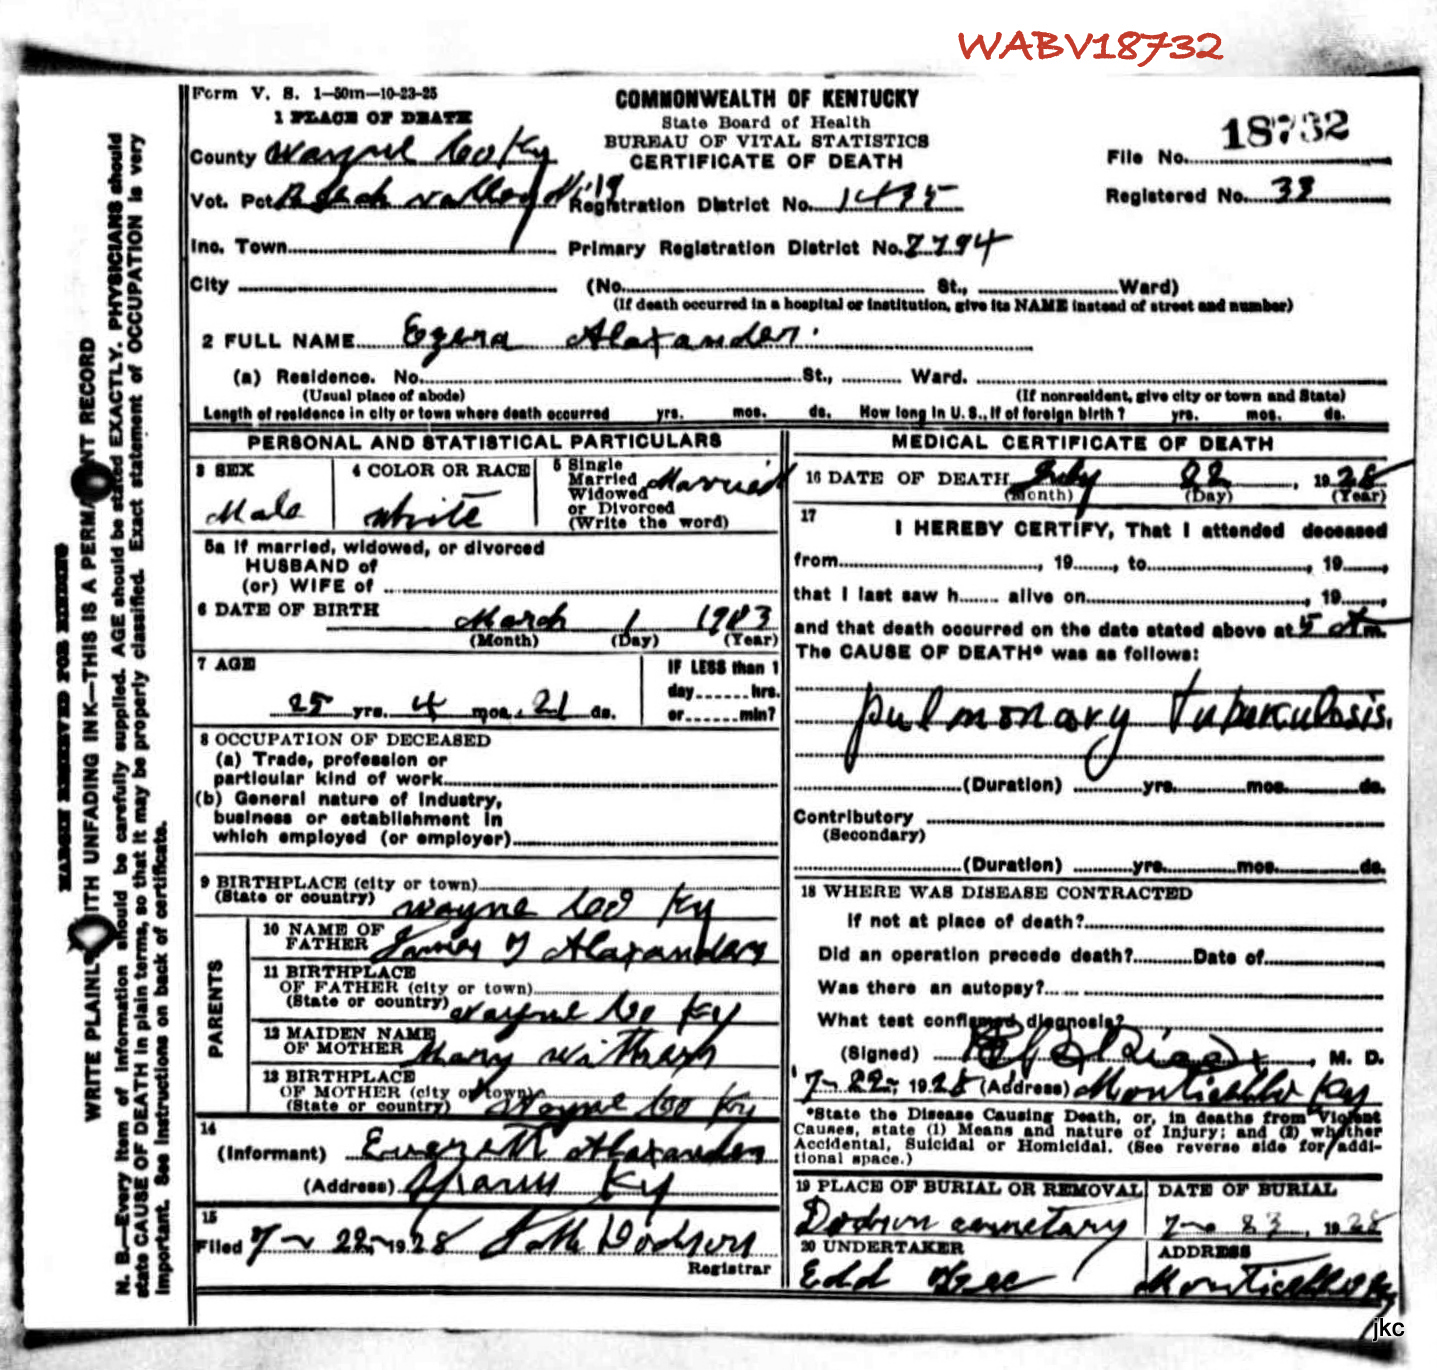 WABV18732
Form V. S. 1—50m—10-23-25
COMMONWEALTH OF KENTUCKY
State Board of Health
BUREAU OF VITAL STATISTICS
CERTIFICATE OF DEATH
File No. 18732
Registered No. 33
1 PLACE OF DEATH
County Wayne Co Ky
Vot. Pct. Registration District No. 1435
Inc. Town Primary Registration District No. 7794
City (No. St., Ward)
(If death occurred in a hospital or institution, give its NAME instead of street and number)
2 FULL NAME Ezera Alaxander
(a) Residence. No. St., Ward.
(Usual place of abode) (If nonresident, give city or town and State)
Length of residence in city or town where death occurred yrs. mos. ds. How long in U. S., if of foreign birth? yrs. mos. ds.
PERSONAL AND STATISTICAL PARTICULARS
3 SEX
Male
4 COLOR OR RACE
White
5 Single
Married
Widowed
or Divorced
(Write the word)
Married
5a If married, widowed, or divorced
HUSBAND of
(or) WIFE of
6 DATE OF BIRTH
March 1 1903
(Month) (Day) (Year)
7 AGE
25 yrs. 4 mos. 21 ds.
IF LESS than 1
day hrs.
or min?
8 OCCUPATION OF DECEASED
(a) Trade, profession or
particular kind of work
(b) General nature of industry,
business or establishment in
which employed (or employer)
9 BIRTHPLACE (city or town)
(State or country) Wayne Co Ky
PARENTS
10 NAME OF
FATHER James T Alaxander
11 BIRTHPLACE
OF FATHER (city or town)
(State or country) Wayne Co Ky
12 MAIDEN NAME
OF MOTHER Mary
13 BIRTHPLACE
OF MOTHER (city or town)
(State or country) Wayne Co Ky
14
(Informant) Everett Alaxander
(Address) Ky
15
Filed 7-22-1928 Dodson
Registrar
MEDICAL CERTIFICATE OF DEATH
16 DATE OF DEATH July 22, 1928
(Month) (Day) (Year)
17
I HEREBY CERTIFY, That I attended deceased
from , 19 , to , 19 ,
that I last saw h alive on , 19 ,
and that death occurred on the date stated above at 5 A m.
The CAUSE OF DEATH* was as follows:
pulmonary tuberculosis.
(Duration) yrs. mos. ds.
Contributory
(Secondary)
(Duration) yrs. mos. ds.
18 WHERE WAS DISEASE CONTRACTED
If not at place of death?
Did an operation precede death? Date of
Was there an autopsy?
What test confirmed diagnosis?
(Signed) , M. D.
7-22-, 1928 (Address) Monticello Ky
*State the Disease Causing Death, or, in deaths from Violent
Causes, state (1) Means and nature of Injury; and (2) whether
Accidental, Suicidal or Homicidal. (See reverse side for addi-
tional space.)
19 PLACE OF BURIAL OR REMOVAL
Dodson cemetary
DATE OF BURIAL
7- 23, 1928
20 UNDERTAKER
Edd
ADDRESS
Monticello Ky
MARGIN RESERVED FOR BINDING
WRITE PLAINLY WITH UNFADING INK—THIS IS A PERMANENT RECORD
N. B.—Every item of information should be carefully supplied. AGE should be stated EXACTLY. PHYSICIANS should
state CAUSE OF DEATH in plain terms, so that it may be properly classified. Exact statement of OCCUPATION is very
important. See instructions on back of certificate.
jkc